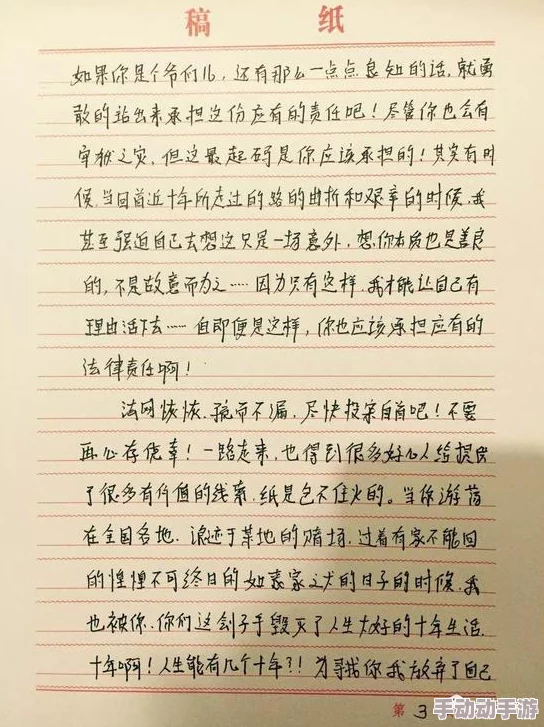 稿 纸
如果你是个爷们儿，还有那么一点点良知的话，就勇
敢的站出来承担这份应有的责任吧！尽管你也会有
牢狱之灾，但这最起码是你应该承担的！其实有时
候，当回首近十年所走过的路的曲折和艰辛的时候，我
甚至强迫自己去想这只是一场意外，想你本质也是善良
的，不是故意而为之……因为只有这样，我才能让自己有
理由活下去……但即便是这样，你也应该承担应有的
法律责任啊！
法网恢恢，疏而不漏，尽快投案自首吧！不要
再心存侥幸！一路走来，也得到很多好心人给提供
了很多有价值的线索，纸是包不住火的。当你游荡
在全国各地，浪迹于某地的赌场，过着有家不能回
的惶惶不可终日的如丧家之犬的日子的时候，我
也被你、你们这刽子手毁灭了人生大好的十年生活，
十年啊！人生能有几个十年？！为寻找你我放弃了自己
第 3
手动动手游